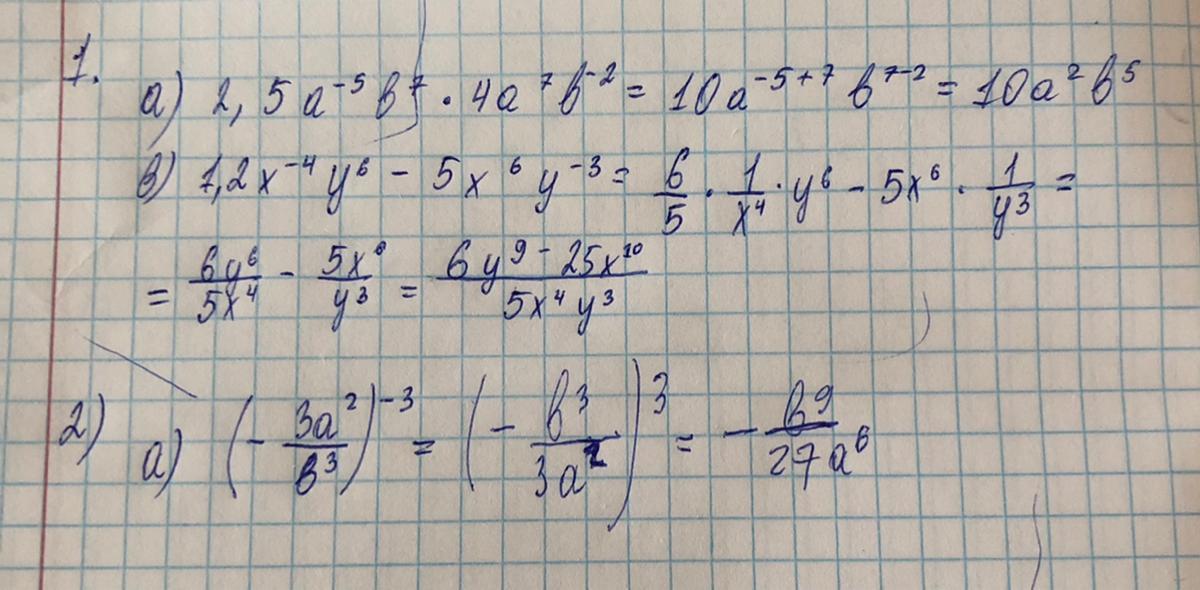 1.
а) 2,5a⁻⁵b⁷ · 4a⁷b⁻² = 10a⁻⁵⁺⁷ b⁷⁻² = 10a²b⁵
в) 1,2x⁻⁴y⁶ - 5x⁶y⁻³ = 6/5 · 1/x⁴ · y⁶ - 5x⁶ · 1/y³ =
= 6y⁶/5x⁴ - 5x⁶/y³ = (6y⁹ - 25x¹⁰)/(5x⁴y³)
2) а) (- 3a²/b³)⁻³ = (- b³/3a²)³ = - b⁹/27a⁶